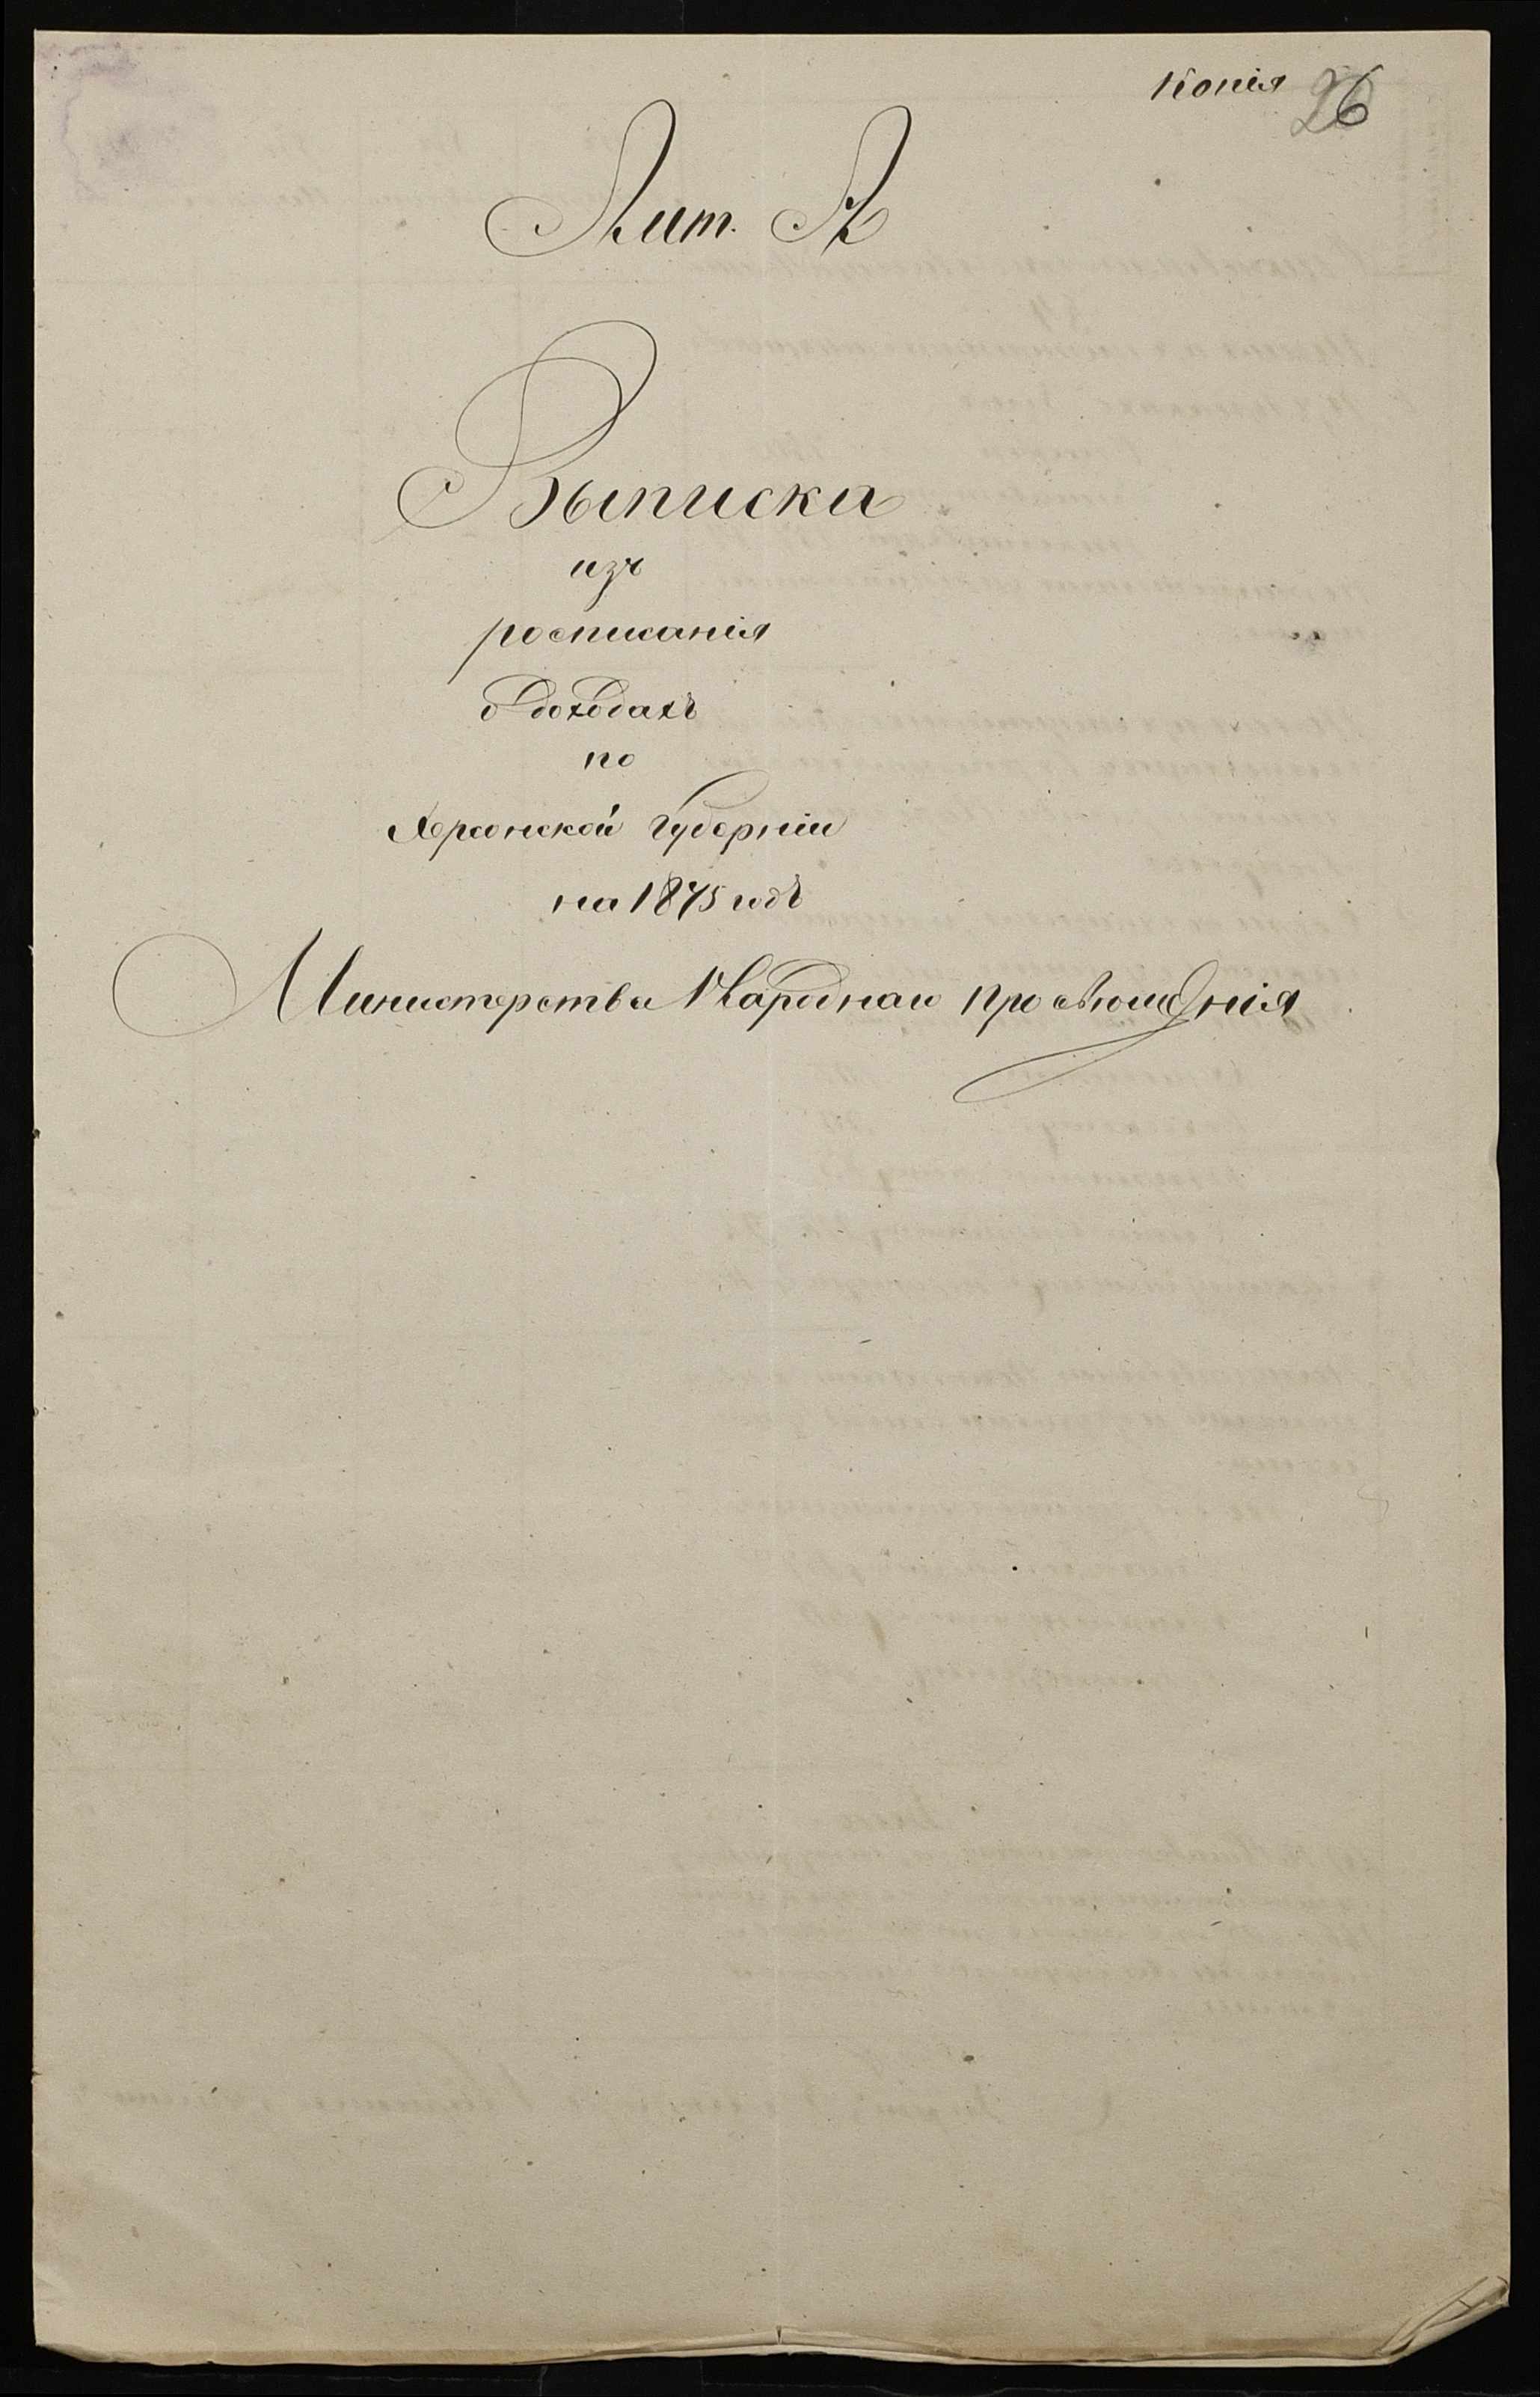 Копія 26
Лит. А
Выписка
изъ
росписанія
о доходахъ
по
Херсонской Губерніи
на 1875 годъ
Министерства Народнаго Просвѣщенія